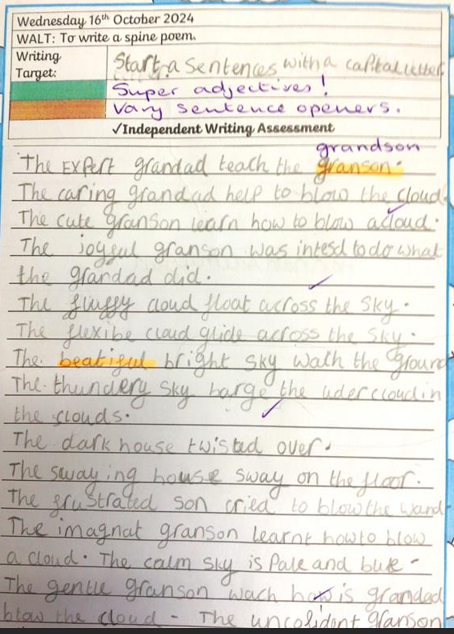 Wednesday 16th October 2024
WALT: To write a spine poem.
Writing Target:
Start a Sentences with a capital letter.
Super adjectives!
Vary sentence openers.
✓Independent Writing Assessment
grandson
The Expert grandad teach the granson.
The caring grandad help to blow the cloud.
The cute granson learn how to blow a cloud.
The joyful granson was intesd to do what
the grandad did.
The fluffy cloud float across the Sky.
The flexibe cloud glide across the Sky.
The beatiful bright sky walk the ground
The thundery sky barge the uder cloud in
the clouds.
The dark house twisted over.
The swaying house sway on the floor.
The frustrated son cried to blow the wand.
The imagnat granson learnt how to blow
a cloud. The calm sky is Pale and
The gentle granson wach how is grandad
blow the cloud - The unconfident granson